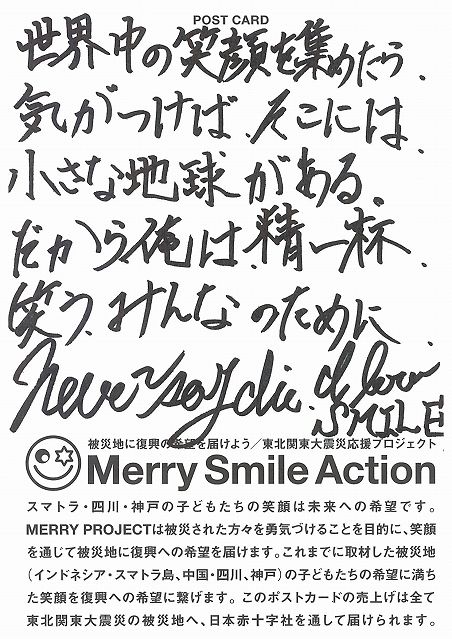 POST CARD
世界中の笑顔を集めたら、
気がつけば、そこには、
小さな地球がある。
だから俺は、精一杯、
笑う、みんなのために、
Never say die
SMILE
被災地に復興の希望を届けよう／東北関東大震災応援プロジェクト
Merry Smile Action
スマトラ・四川・神戸の子どもたちの笑顔は未来への希望です。
MERRY PROJECTは被災された方々を勇気づけることを目的に、笑顔
を通じて被災地に復興への希望を届けます。これまでに取材した被災地
（インドネシア・スマトラ島、中国・四川、神戸）の子どもたちの希望に満ち
た笑顔を復興への希望に繋げます。 このポストカードの売上げは全て
東北関東大震災の被災地へ、日本赤十字社を通して届けられます。